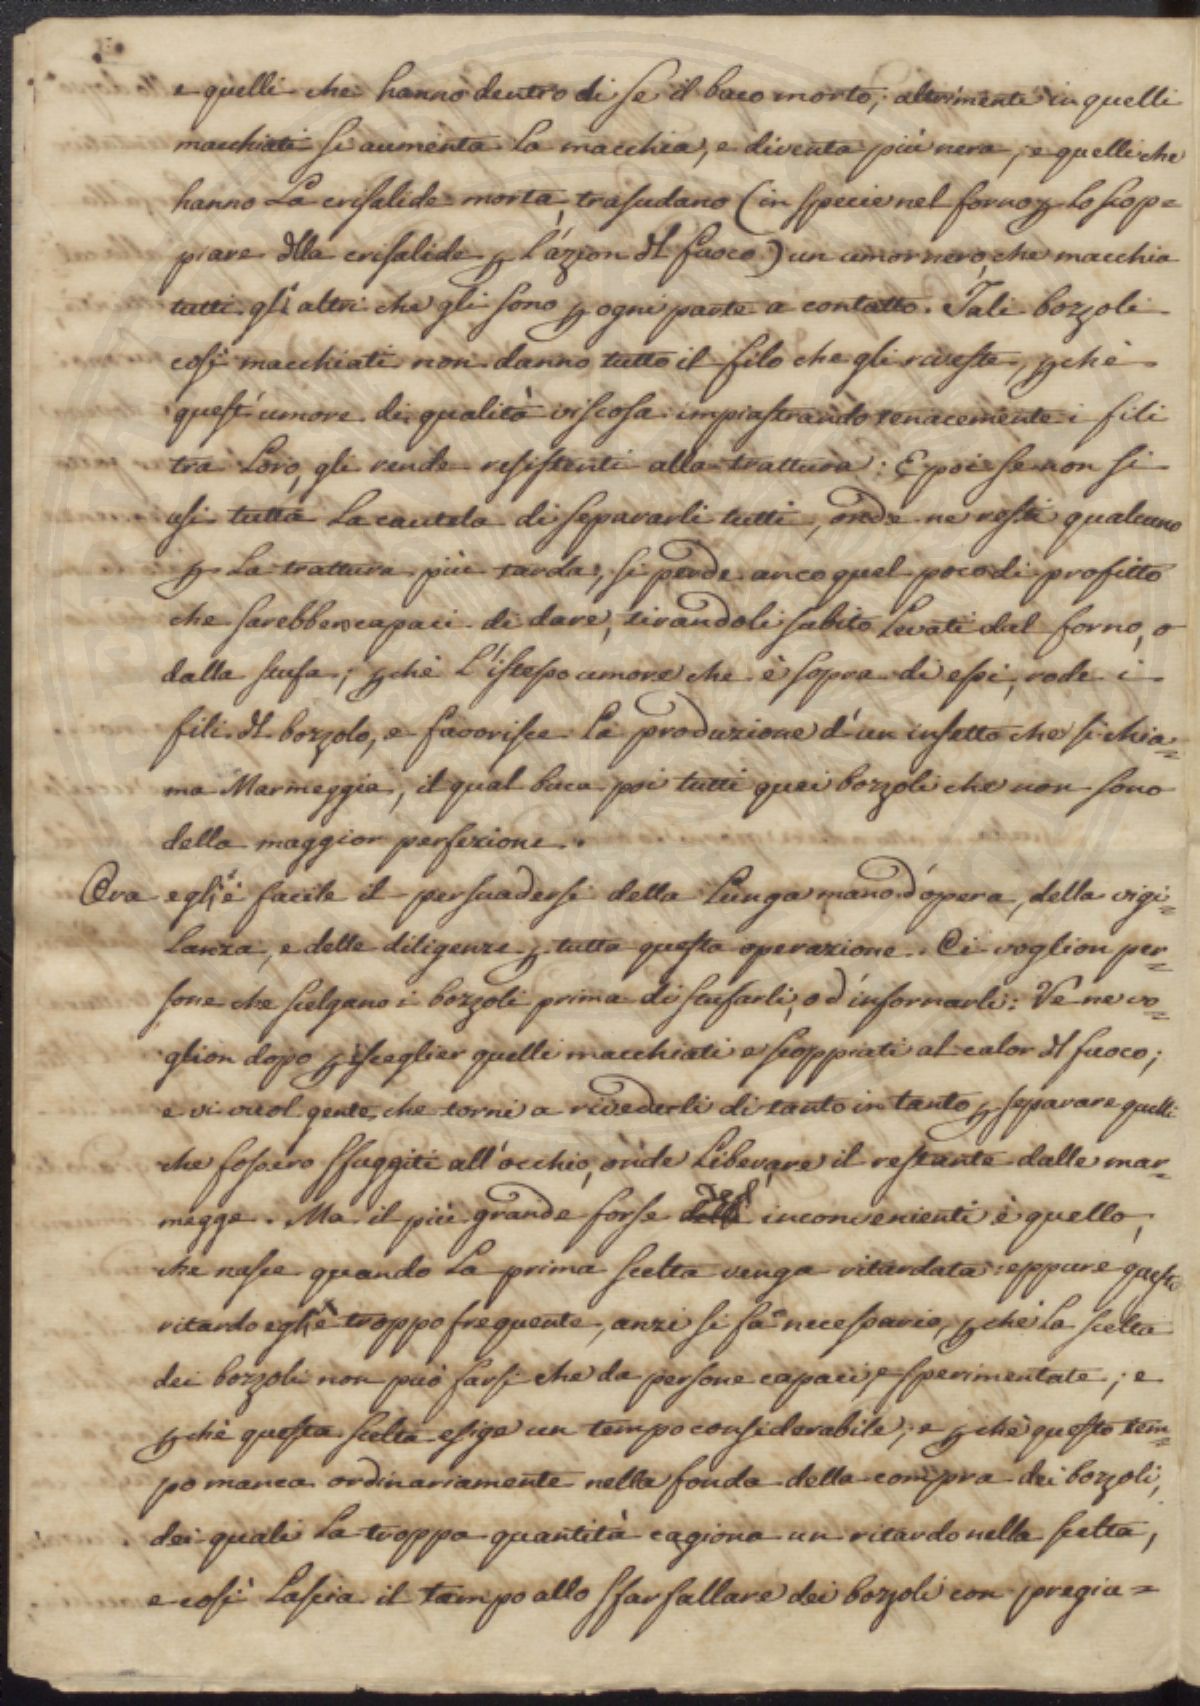 e quelli che hanno dentro di se il baco morto; altrimenti in quelli
macchiati si aumenta la macchia, e diventa più nera; e quelli che
hanno la crisalide morta, trasudano (in specie nel forno ꝑ lo scop=
piare dlla crisalide ꝑ l'azion dl fuoco) un umor nero, che macchia
tutti gli altri che gli sono ꝑ ogni parte a contatto. Tali bozzoli
così macchiati non danno tutto il filo che gli riveste, ꝑchè
quest'umore di qualità viscosa impiastrando tenacemente i fili
tra loro, gli rende resistenti alla trattura: E poi se non si
usi tutta la cautela di separarli tutti, onde ne resti qualcuno
ꝑ la trattura più tarda, si perde anco quel poco di profitto
che sarebbero capaci di dare, tirandoli subito levati dal forno, o
dalla stufa; ꝑchè l'istesso umore che è sopra di essi, rode i
fili dl bozzolo, e favorisce la produzione d'un insetto che si chia=
ma Marmeggia, il qual buca poi tutti quei bozzoli che non sono
della maggior perfezione.
Ora egli è facile il persuadersi della lunga mano d'opera, della vigi=
lanza, e delle diligenze ꝑ tutta questa operazione. Ci voglion per=
sone che scelgano i bozzoli prima di stufarli, o d'infornarli: Ve ne vo=
glion dopo ꝑ isceglier quelli macchiati e scoppiati al calor dl fuoco;
e vi vuol gente, che torni a rivederli di tanto in tanto ꝑ separare quelli
che fossero sfuggiti all'occhio, onde liberare il restante dalle mar=
megge. Ma il più grande forse degl' inconvenienti è quello,
che nasce quando la prima scelta venga ritardata: eppure questo
ritardo egli è troppo frequente, anzi si fa necessario, ꝑchè la scelta
dei bozzoli non può farsi che da persone capaci, e sperimentate; e
ꝑchè questa scelta esige un tempo considerabile; e ꝑchè questo tem=
po manca ordinariamente nella fonda della compra dei bozzoli,
dei quali la troppa quantità cagiona un ritardo nella scelta,
e così lascia il tempo allo sfarfallare dei bozzoli con pregia=